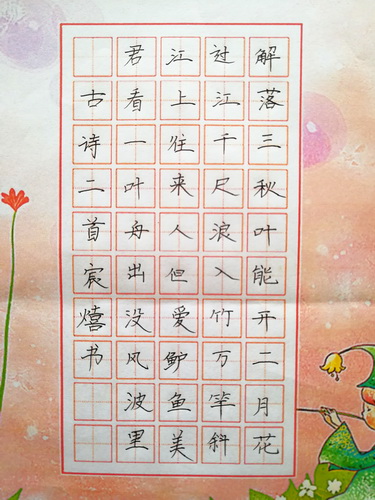 解落三秋叶能开二月花
过江千尺浪入竹万竿斜
江上往来人但爱鲈鱼美
君看一叶舟出没风波里
古诗二首宸熺书